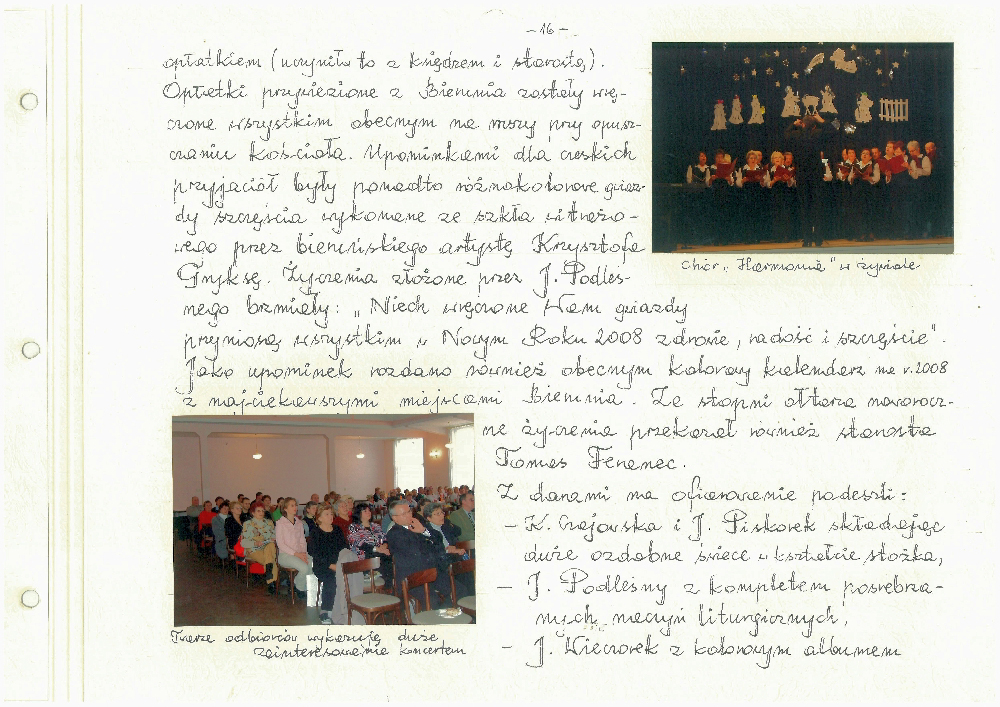 - 16 -
opłatkiem (uczynił to z księdzem i starostą).
Opłatki przywiezione z Bierunia zostały wrę-
czone wszystkim obecnym na mszy przy opusz-
czaniu kościoła. Upominkami dla czeskich
przyjaciół były ponadto różnokolorowe gwiaz-
dy szczęścia wykonane ze szkła witrażo-
wego przez bieruńskiego artystę Krzysztofa
Gryksę. Życzenia złożone przez J. Podleś-
nego brzmiały: „Niech wręczone Wam gwiazdy
przyniosą wszystkim w Nowym Roku 2008 zdrowie, radość i szczęście".
Jako upominek rozdano również obecnym kolorowy kalendarz na r. 2008
z najciekawszymi miejscami Bierunia. Ze stopni ołtarza noworocz-
ne życzenia przekazał również starosta
Tomas Fenenec.
Z darami na ofiarowanie podeszli:
- K. Czajowska i J. Piskorek składając
duże ozdobne świece w kształcie stożka,
- J. Podleśny z kompletem posrebrza-
nych naczyń liturgicznych,
- J. Wieczorek z kolorowym albumem
chór „Harmonia" w żywiole
Twarze odbiorców wykazują duże
zainteresowanie koncertem